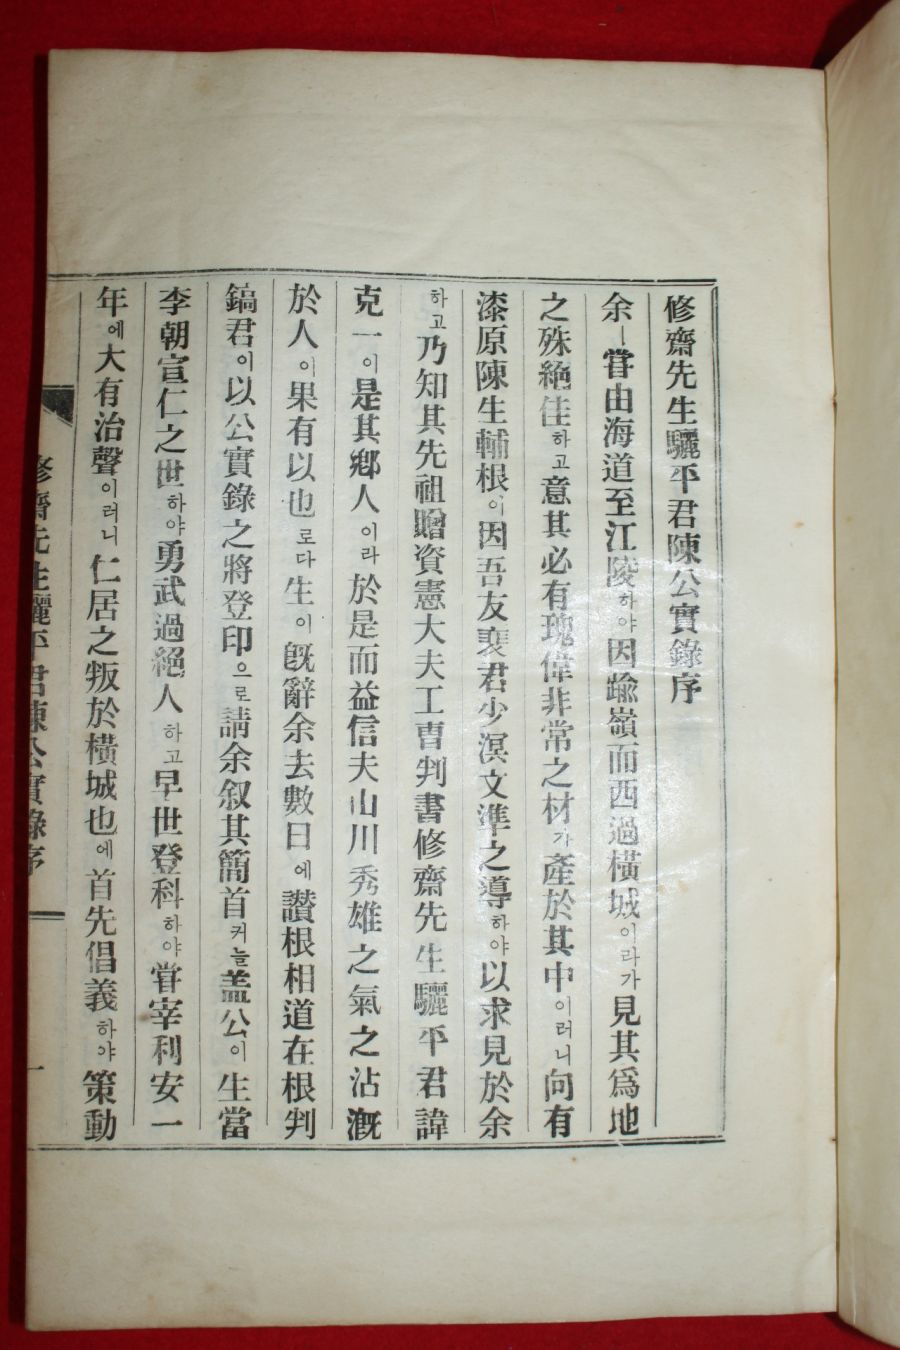 修齋先生驪平君陳公實錄序
余ㅣ甞由海道至江陵하야因踰嶺而西過橫城이라가見其爲地
之殊絶佳하고意其必有瑰偉非常之材가產於其中이러니向有
漆原陳生輔根이因吾友裵君少溟文準之導하야以求見於余
하고乃知其先祖贈資憲大夫工曹判書修齋先生驪平君諱
克一이是其鄕人이라於是而益信夫山川秀雄之氣之沾漑
於人이果有以也로다生이旣辭余去數日에讃根相道在根判
鎬君이以公實錄之將登印으로請余叙其簡首커늘盖公이生當
李朝宣仁之世하야勇武過絕人하고早世登科하야甞宰利安一
年에大有治聲이러니仁居之叛於橫城也에首先倡義하야策動
修齋先生驪平君陳公實錄序
一